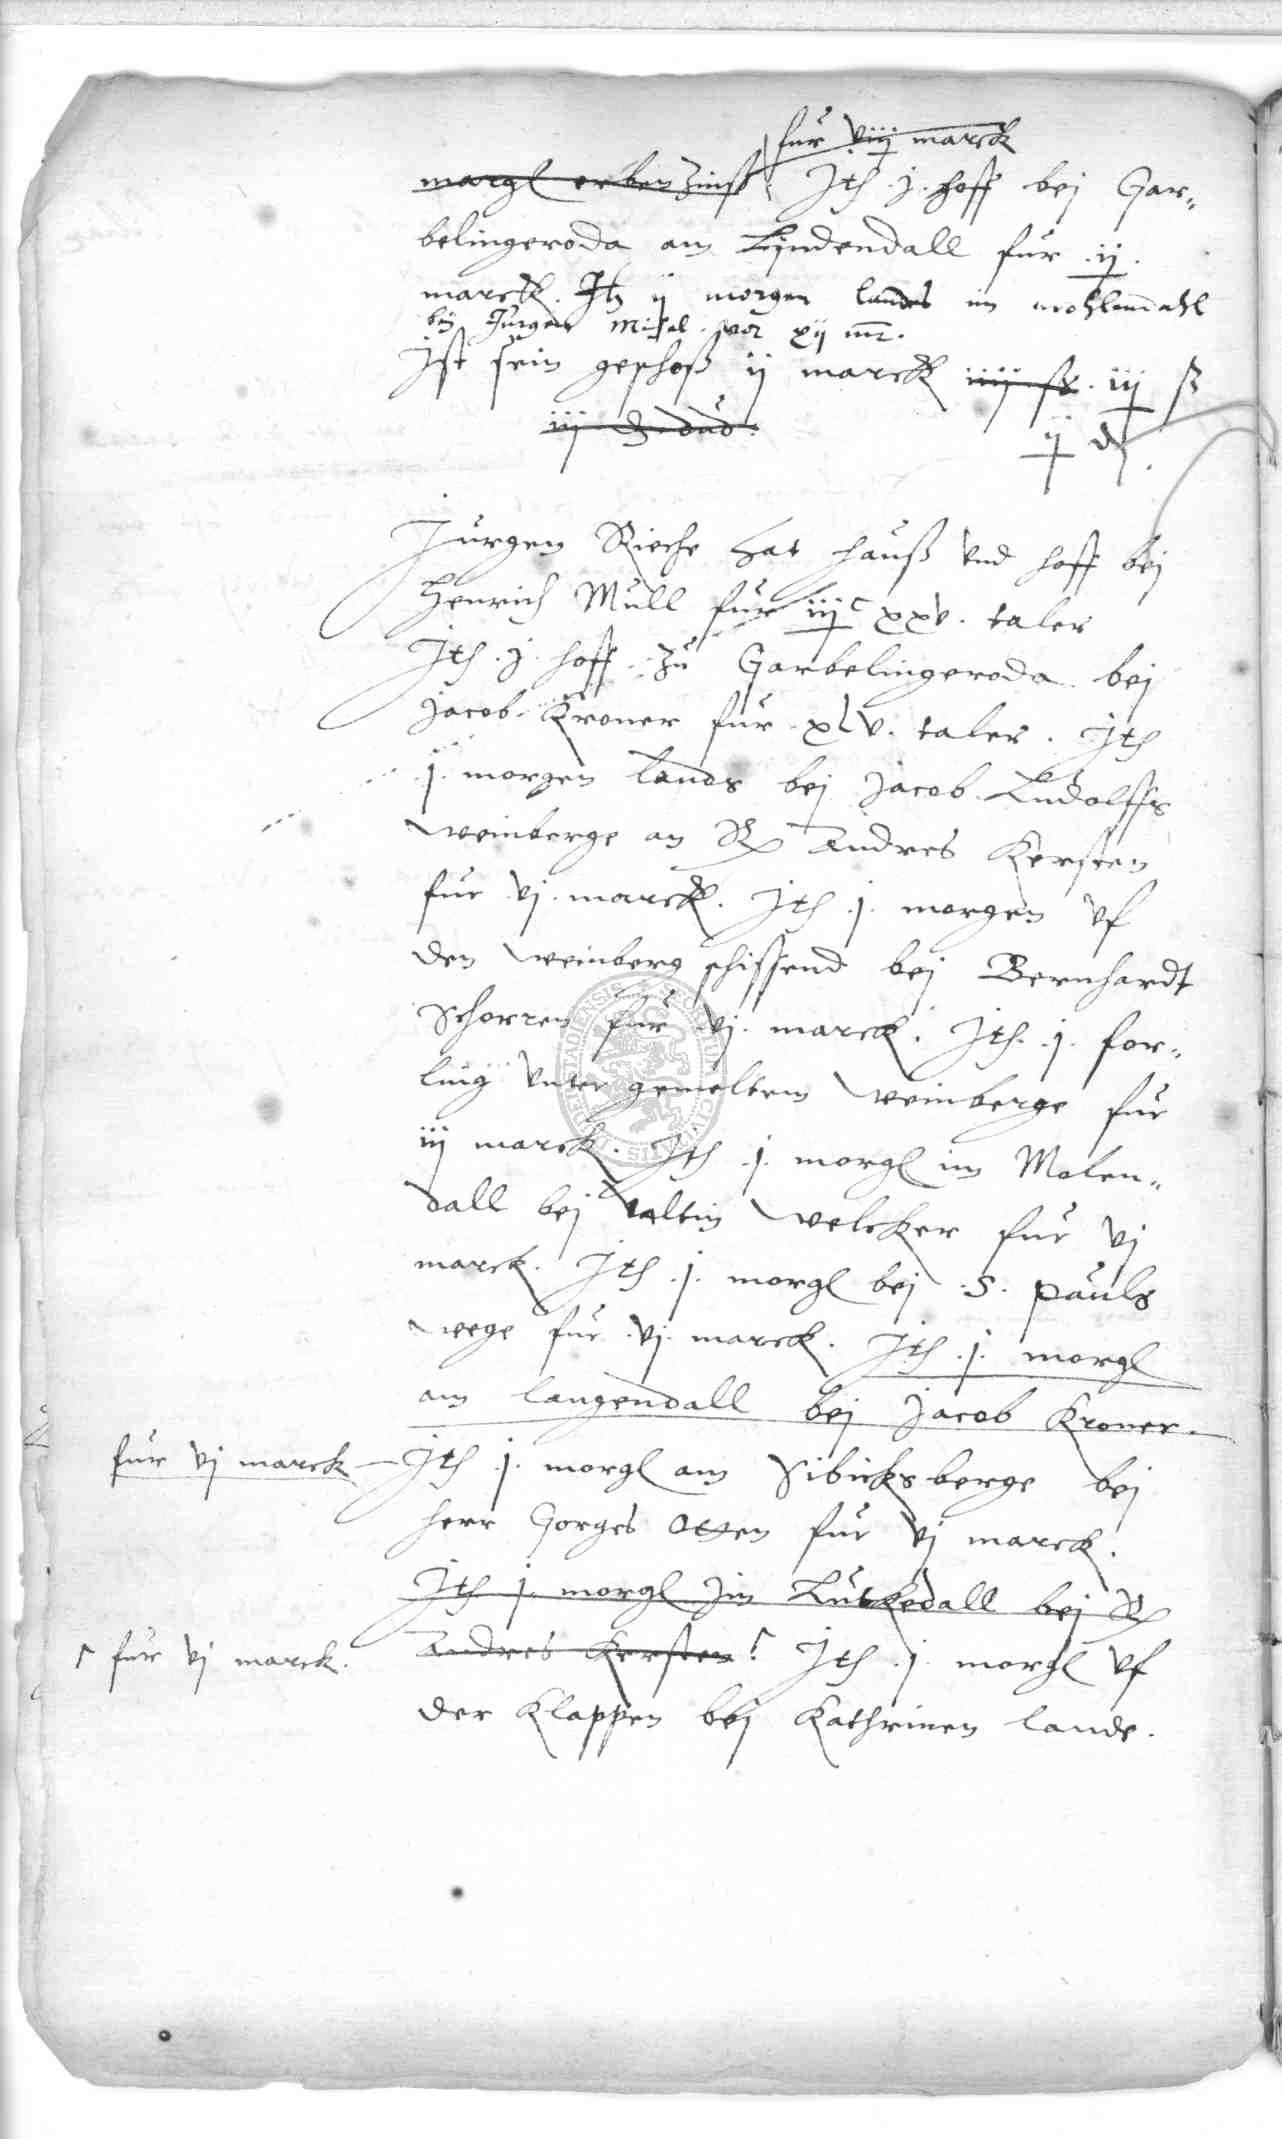 fur viij marck
margl erbenzinß Jth j hoff bej Gar„
belingeroda am Lyndendall fur ij
marck. Jtz ij morgen landes im mohlendahl
bij Jurgen Misel vor xij mr.
Jst sein geschoß ij marck iiij ß. iij ß
iij d dud.
ij d.
Jurgen Rieche hat hauß vnd hoff bej
Henrich Mull fur iijc xxv. taler
Jth. j. hoff zu Garbelingeroda bej
Jacob Kroner fur xlv. taler. Jth
j. morgen lands bej Jacob Ludolffs
weinberge an Er Andres Kersten
fur vj. marck. Jth j. morgen vf
den weinberg schissend bej Bernhardt
Schorren fur vj. marck. Jth. j. for„
ling vnter gemeltem weinberge fur
iij marck. Jth j. morgl im Molen„
dall bej valtin Welcker fur vj
marck. Jth j. morgl bej S. Pauls
wege fur vj. marck. Jth j. morgl
am langendall bej Jacob Kroner.
fur vj marck Jth j. morgl am Sibicksberge bej
herr Gorges Otten fur vj marck.
Jth j. morgl Jm Lutkedall bej Er
fur vj marck. Andres Kersten Jth j. morgl vf
der Klappen bej Kathrinen lande.
SECRETUM CIVITATIS